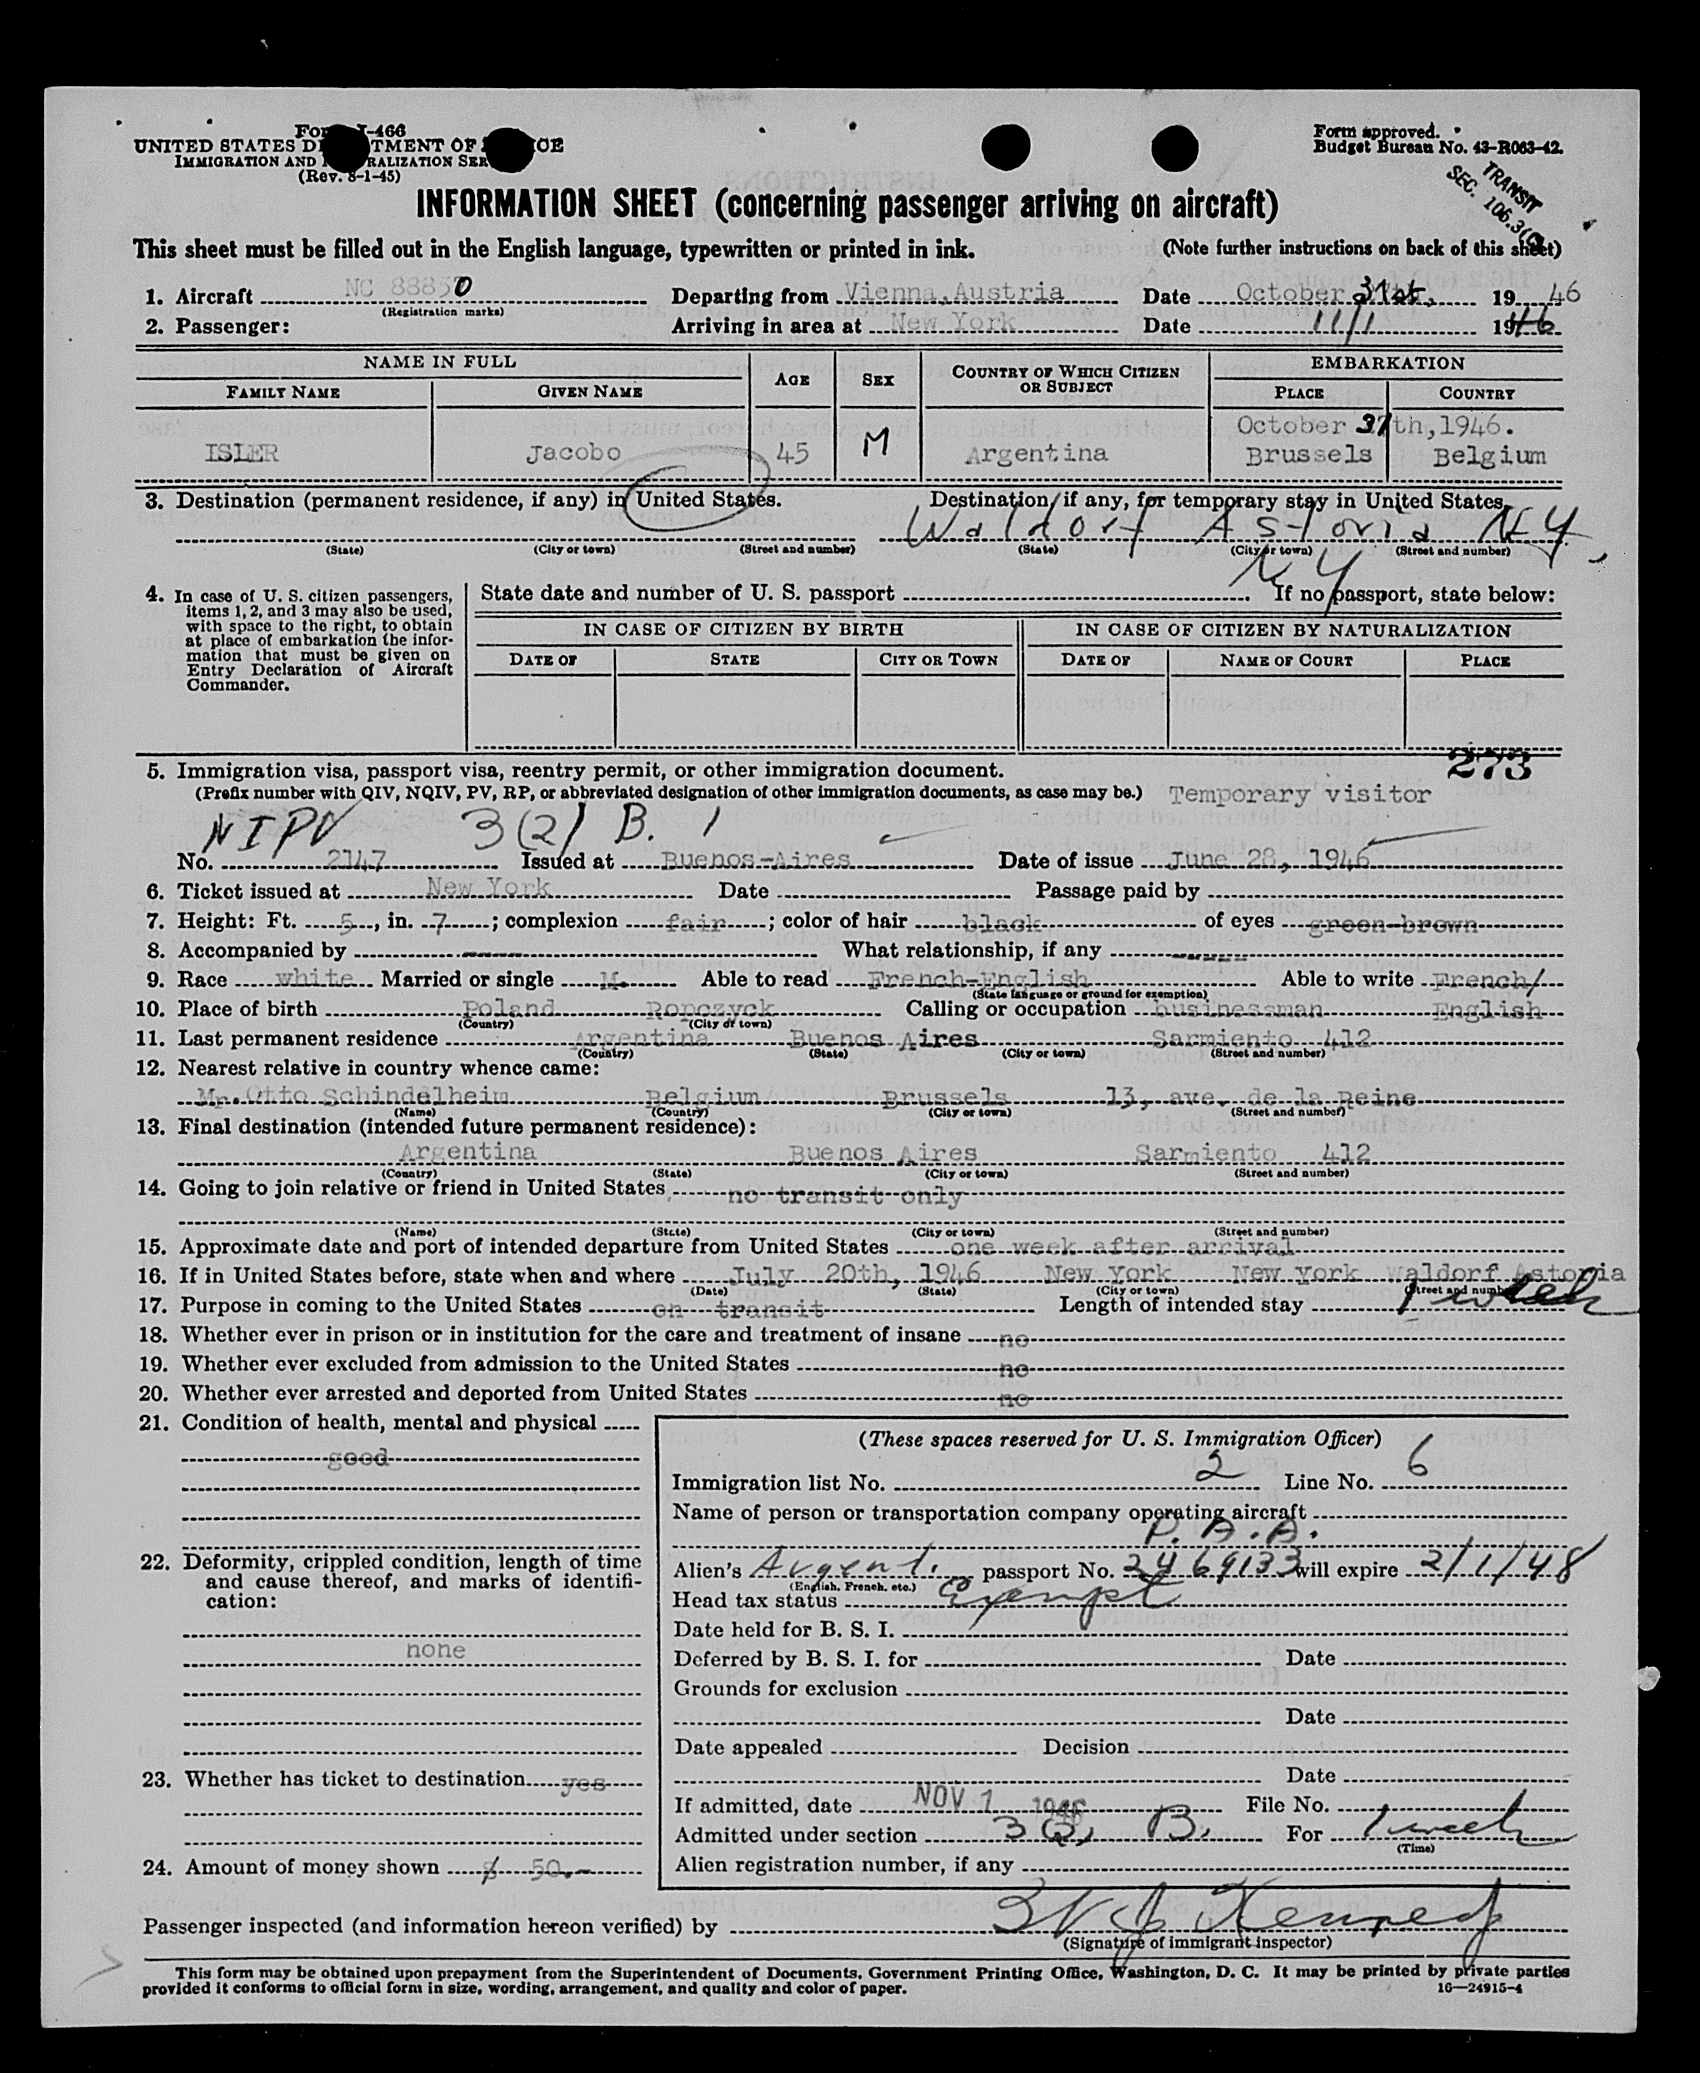 Form I-466
UNITED STATES DEPARTMENT OF JUSTICE
IMMIGRATION AND NATURALIZATION SERVICE
(Rev. 8-1-45)
Form approved.
Budget Bureau No. 43-R063-42.
TRANSIT
SEC. 106.3
INFORMATION SHEET (concerning passenger arriving on aircraft)
This sheet must be filled out in the English language, typewritten or printed in ink. (Note further instructions on back of this sheet)
1. Aircraft NC 88850 Departing from Vienna,Austria Date October 31st, 1946
(Registration marks)
2. Passenger: Arriving in area at New York Date 11/1 1946
NAME IN FULL AGE SEX COUNTRY OF WHICH CITIZEN OR SUBJECT EMBARKATION
FAMILY NAME GIVEN NAME PLACE COUNTRY
October 31th,1946.
ISLER Jacobo 45 M Argentina Brussels Belgium
3. Destination (permanent residence, if any) in United States. Destination, if any, for temporary stay in United States.
Waldorf Astoria N.Y.
(State) (City or town) (Street and number) (State) (City or town) (Street and number)
N Y
4. In case of U. S. citizen passengers, items 1, 2, and 3 may also be used, with space to the right, to obtain at place of embarkation the information that must be given on Entry Declaration of Aircraft Commander.
State date and number of U. S. passport . If no passport, state below:
IN CASE OF CITIZEN BY BIRTH IN CASE OF CITIZEN BY NATURALIZATION
DATE OF STATE CITY OR TOWN DATE OF NAME OF COURT PLACE
273
5. Immigration visa, passport visa, reentry permit, or other immigration document.
(Prefix number with QIV, NQIV, PV, RP, or abbreviated designation of other immigration documents, as case may be.) Temporary visitor
NIPV 3(2) B. 1
No. 2147 Issued at Buenos-Aires Date of issue June 28, 1946
6. Ticket issued at New York Date Passage paid by
7. Height: Ft. 5, in. 7; complexion fair; color of hair black of eyes green-brown
8. Accompanied by ---- What relationship, if any -----
9. Race white Married or single M. Able to read French-English Able to write French/
(State language or ground for exemption)
10. Place of birth Poland Ropczyck Calling or occupation businessman English
(Country) (City or town)
11. Last permanent residence Argentina Buenos Aires Sarmiento 412
(Country) (State) (City or town) (Street and number)
12. Nearest relative in country whence came:
Mr. Otto Schindelheim Belgium Brussels 13, ave. de la Reine
(Name) (Country) (City or town) (Street and number)
13. Final destination (intended future permanent residence):
Argentina Buenos Aires Sarmiento 412
(Country) (State) (City or town) (Street and number)
14. Going to join relative or friend in United States no transit only
(Name) (State) (City or town) (Street and number)
15. Approximate date and port of intended departure from United States one week after arrival
16. If in United States before, state when and where July 20th, 1946 New York New York Waldorf Astoria
(Date) (State) (City or town) (Street and number)
17. Purpose in coming to the United States on transit Length of intended stay 1 week
18. Whether ever in prison or in institution for the care and treatment of insane no
19. Whether ever excluded from admission to the United States no
20. Whether ever arrested and deported from United States no
21. Condition of health, mental and physical
good
22. Deformity, crippled condition, length of time and cause thereof, and marks of identification:
none
23. Whether has ticket to destination yes
24. Amount of money shown $ 50.-
(These spaces reserved for U. S. Immigration Officer)
Immigration list No. 2 Line No. 6
Name of person or transportation company operating aircraft
P.A.A.
Alien's Argent. passport No. 2469133 will expire 2/1/48
(English, French, etc.)
Head tax status Exempt
Date held for B. S. I.
Deferred by B. S. I. for Date
Grounds for exclusion
Date
Date appealed Decision
Date
If admitted, date NOV 1 1946 File No.
Admitted under section 3(2) B. For 1 week
(Time)
Alien registration number, if any
Passenger inspected (and information hereon verified) by Kennedy
(Signature of immigrant inspector)
This form may be obtained upon prepayment from the Superintendent of Documents, Government Printing Office, Washington, D. C. It may be printed by private parties
provided it conforms to official form in size, wording, arrangement, and quality and color of paper. 16—24915-4